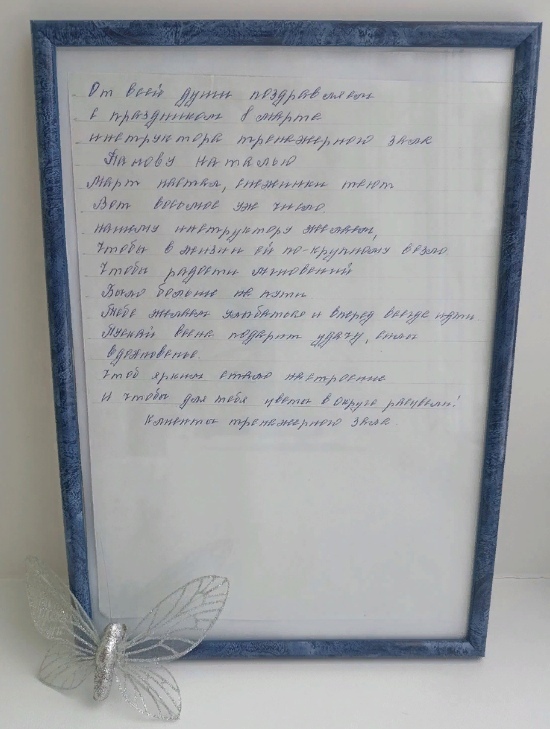 От всей души поздравляем
с праздником 8 марта
инструктора тренажерного зала
Панову Наталью
Март настал, снежинки тают
Вот восьмое уже число
нашему инструктору желаем,
Чтобы в жизни ей по-крупному везло
Чтобы радости мгновений
Было больше на пути
Тебе желаем улыбаться и вперед всегда идти
Пускай весна подарит удачу, силы
вдохновенье.
Чтоб ярким стало настроение
И чтобы для тебя цветы в округе расцвели!
Клиенты тренажерного зала